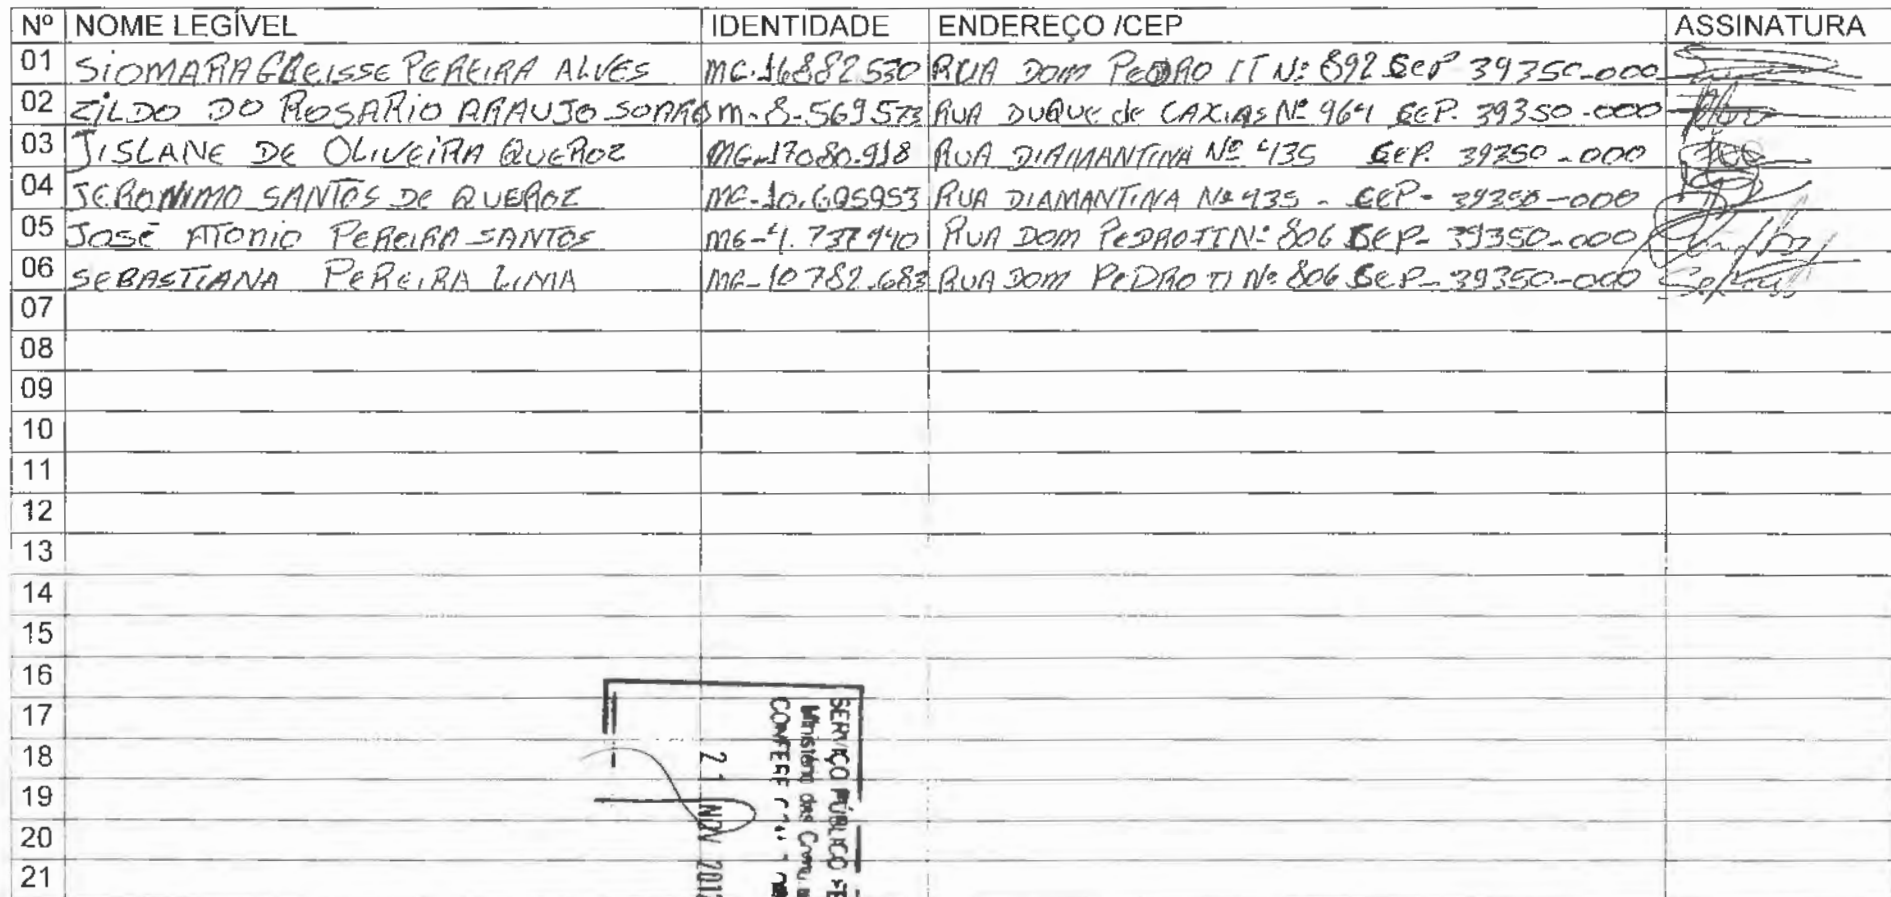 Nº NOME LEGÍVEL IDENTIDADE ENDEREÇO /CEP ASSINATURA
01 SIOMARA GREISSE PEREIRA ALVES MG-16882530 RUA DOM PEDRO II Nº 892 CEP 39350-000
02 ZILDO DO ROSARIO ARAUJO M-8-569573 RUA DUQUE de CAXIAS Nº 964 CEP. 39350-000
03 JISLANE DE OLIVEIRA QUEROZ MG-17080.918 RUA DIAMANTINA Nº 435 CEP. 39350-000
04 JERONIMO SANTOS DE QUEROZ MG-10.695953 RUA DIAMANTINA Nº 435 - CEP- 39350-000
05 JOSÉ ATONIO PEREIRA SANTOS MG-4.737940 RUA DOM PEDRO II Nº 806 CEP- 39350-000
06 SEBASTIANA PEREIRA LIMA MG-10782.683 RUA DOM PEDRO II Nº 806 CEP- 39350-000
07
08
09
10
11
12
13
14
15
16
17
18
19
20
21
SERVIÇO PÚBLICO FE
Ministério das Comu
CONFERE
21 NOV 201